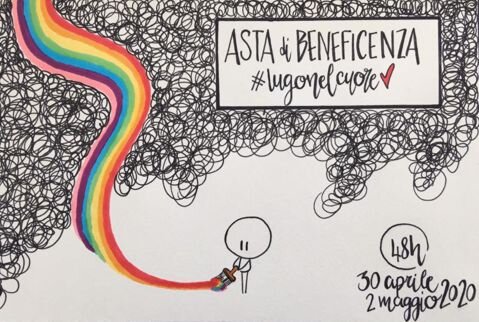 ASTA di BENEFICENZA
#lugonelcuore
48h
30 aprile
2 maggio 2020